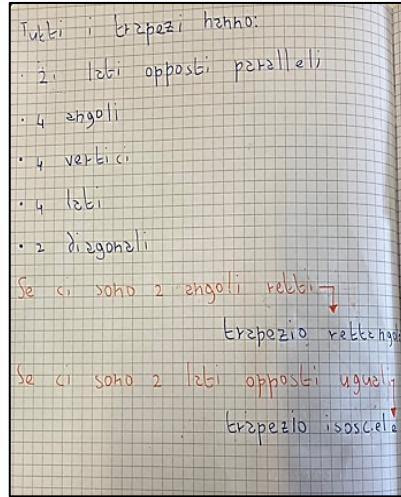 Tutti i trapezi hanno:
• 2 lati opposti paralleli
• 4 angoli
• 4 vertici
• 4 lati
• 2 diagonali
Se ci sono 2 angoli retti
trapezio rettangol
Se ci sono 2 lati opposti uguali
trapezio isoscele